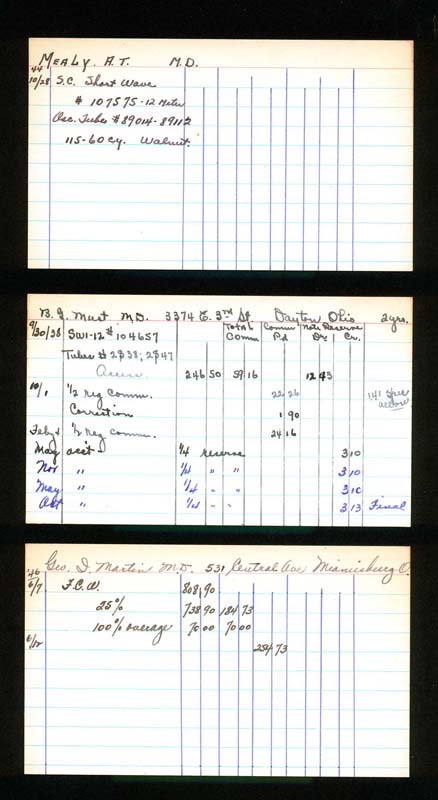 Mealy, A.T. M.D.
44
10/28 S.C. Short Wave
# 107575-12 Meter
Osc. Tubes #89014-89112
115-60 cy. Walnut.
B. J. Must M.D. 3374 E. 3rd St. Dayton Ohio 2 yrs.
Total Comm Comm Pd Note Reserve Dr. Cr.
9/30/38 SW1-12 # 104657
Tubes # 2538; 2547
Access 246 50 59 16 12 43
10/1 1/2 reg Comm. 22 26 141 spec allow
Correction 1 90
Feby 1/2 reg comm. 24 16
May acc't 1/4 reserve 3 10
Nov " 1/4 " " 3 10
May " 1/4 " " 3 10
Oct " 1/4 " " 3 13 Final
Geo. D. Martin M.D. 531 Central Ave Miamisburg O.
'46
6/7 F.C.W. 808 90
25% 738 90 184 73
100% overage 70 00 70 00
6/12 254 73